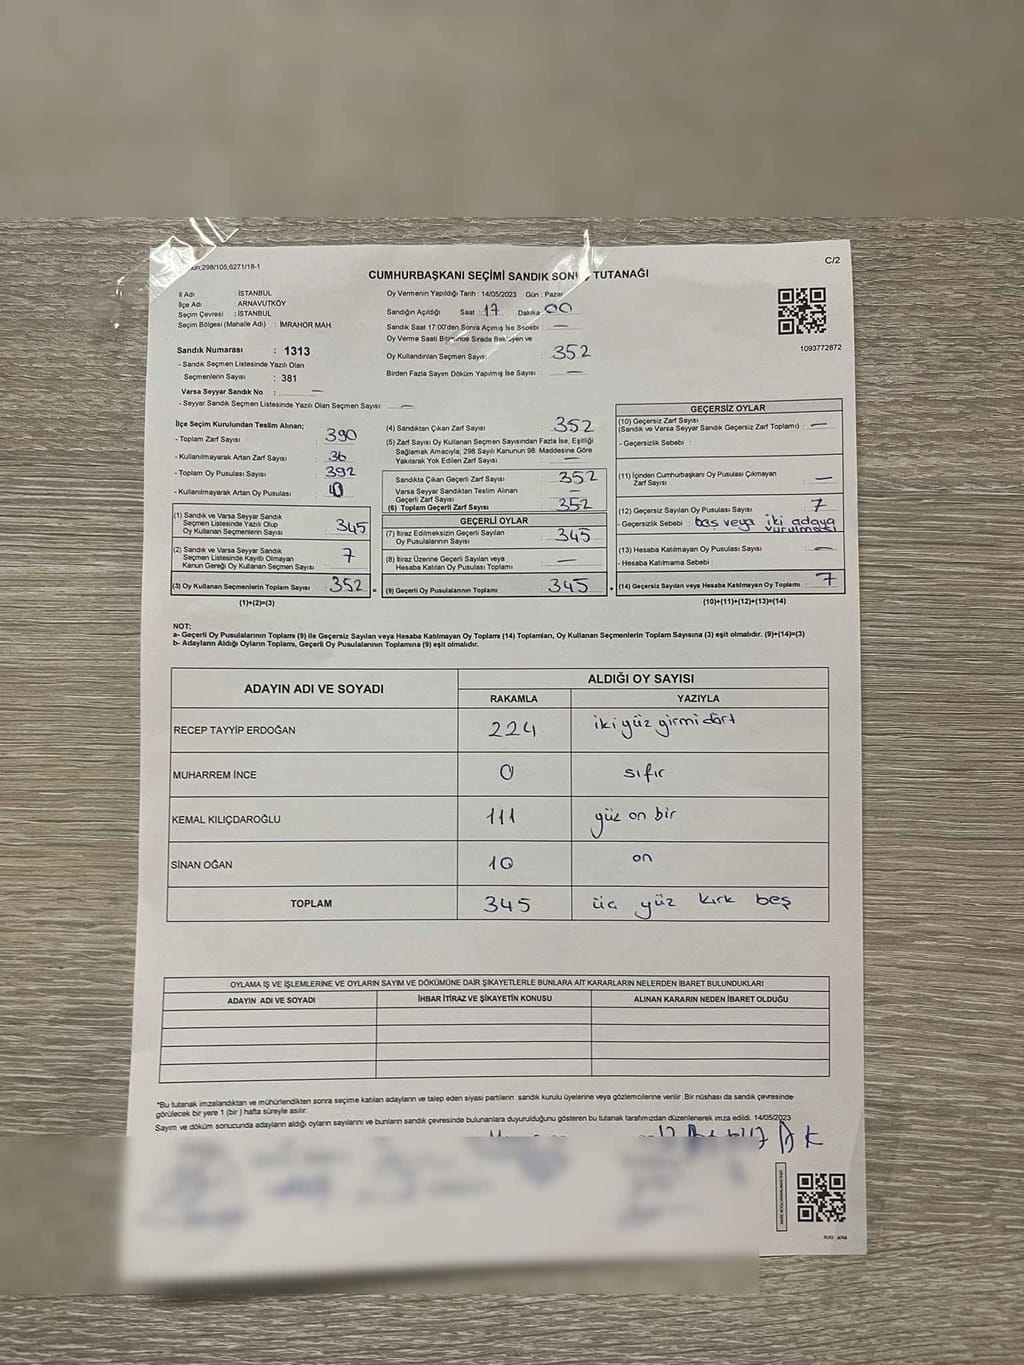 298/105;6271/18-1
C/2
CUMHURBAŞKANI SEÇİMİ SANDIK TUTANAĞI
İl Adı : İSTANBUL
İlçe Adı : ARNAVUTKÖY
Seçim Çevresi : İSTANBUL
Seçim Bölgesi (Mahalle Adı) : İMRAHOR MAH.
Oy Vermenin Yapıldığı Tarih : 14/05/2023 Gün : Pazar
Sandığın Açıldığı Saat : 17 Dakika : 00
Sandık Saat 17:00'den Sonra Açımış İse Sebebi : —
Oy Verme Saati Bitiminde Sırada Bekleyen ve
Oy Kullandırılan Seçmen Sayısı : 352
Birden Fazla Sayım Döküm Yapılmış İse Sayısı : —
1093772872
Sandık Numarası : 1313
- Sandık Seçmen Listesinde Yazılı Olan
Seçmenlerin Sayısı : 381
Varsa Seyyar Sandık No : —
- Seyyar Sandık Seçmen Listesinde Yazılı Olan Seçmen Sayısı: —
İlçe Seçim Kurulundan Teslim Alınan;
- Toplam Zarf Sayısı : 390
- Kullanılmayarak Artan Zarf Sayısı : 36
- Toplam Oy Pusulası Sayısı : 392
- Kullanılmayarak Artan Oy Pusulası :
(1) Sandık ve Varsa Seyyar Sandık
Seçmen Listesinde Yazılı Olup
Oy Kullanan Seçmenlerin Sayısı : 345
(2) Sandık ve Varsa Seyyar Sandık
Seçmen Listesinde Kayıtlı Olmayan
Kanun Gereği Oy Kullanan Seçmen Sayısı : 7
(3) Oy Kullanan Seçmenlerin Toplam Sayısı : 352 =
(1)+(2)=(3)
(4) Sandıktan Çıkan Zarf Sayısı : 352
(5) Zarf Sayısı Oy Kullanan Seçmen Sayısından Fazla İse, Eşitliği
Sağlamak Amacıyla; 298 Sayılı Kanunun 98. Maddesine Göre
Yakılarak Yok Edilen Zarf Sayısı : —
Sandıkta Çıkan Geçerli Zarf Sayısı : 352
Varsa Seyyar Sandıktan Teslim Alınan
Geçerli Zarf Sayısı : —
(6) Toplam Geçerli Zarf Sayısı : 352
GEÇERLİ OYLAR
(7) İtiraz Edilmeksizin Geçerli Sayılan
Oy Pusulalarının Sayısı : 345
(8) İtiraz Üzerine Geçerli Sayılan veya
Hesaba Katılan Oy Pusulası Toplamı : —
(9) Geçerli Oy Pusulalarının Toplamı : 345 +
GEÇERSİZ OYLAR
(10) Geçersiz Zarf Sayısı
(Sandık ve Varsa Seyyar Sandık Geçersiz Zarf Toplamı) : —
- Geçersizlik Sebebi :
(11) İçinden Cumhurbaşkanı Oy Pusulası Çıkmayan
Zarf Sayısı : —
(12) Geçersiz Sayılan Oy Pusulası Sayısı : 7
- Geçersizlik Sebebi : boş veya iki adaya
vurulması
(13) Hesaba Katılmayan Oy Pusulası Sayısı : —
- Hesaba Katılmama Sebebi :
(14) Geçersiz Sayılan veya Hesaba Katılmayan Oy Toplamı : 7
(10)+(11)+(12)+(13)=(14)
NOT:
a- Geçerli Oy Pusulalarının Toplamı (9) ile Geçersiz Sayılan veya Hesaba Katılmayan Oy Toplamı (14) Toplamları, Oy Kullanan Seçmenlerin Toplam Sayısına (3) eşit olmalıdır. (9)+(14)=(3)
b- Adayların Aldığı Oyların Toplamı, Geçerli Oy Pusulalarının Toplamına (9) eşit olmalıdır.
ADAYIN ADI VE SOYADI
ALDIĞI OY SAYISI
RAKAMLA YAZIYLA
RECEP TAYYİP ERDOĞAN 224 iki yüz yirmi dört
MUHARREM İNCE 0 sıfır
KEMAL KILIÇDAROĞLU 111 yüz on bir
SİNAN OĞAN 10 on
TOPLAM 345 üç yüz kırk beş
OYLAMA İŞ VE İŞLEMLERİNE VE OYLARIN SAYIM VE DÖKÜMÜNE DAİR ŞİKAYETLERLE BUNLARA AİT KARARLARIN NELERDEN İBARET BULUNDUKLARI
ADAYIN ADI VE SOYADI İHBAR İTİRAZ VE ŞİKAYETİN KONUSU ALINAN KARARIN NEDEN İBARET OLDUĞU
*Bu tutanak imzalandıktan ve mühürlendikten sonra seçime katılan adayların ve talep eden siyasi partilerin sandık kurulu üyelerine veya gözlemcilerine verilir. Bir nüshası da sandık çevresinde
görülecek bir yere 1 (bir) hafta süreyle asılır.
Sayım ve döküm sonucunda adayların aldığı oyların sayılarını ve bunların sandık çevresinde bulunanlara duyurulduğunu gösteren bu tutanak tarafımızdan düzenlenerek imza edildi. 14/05/2023